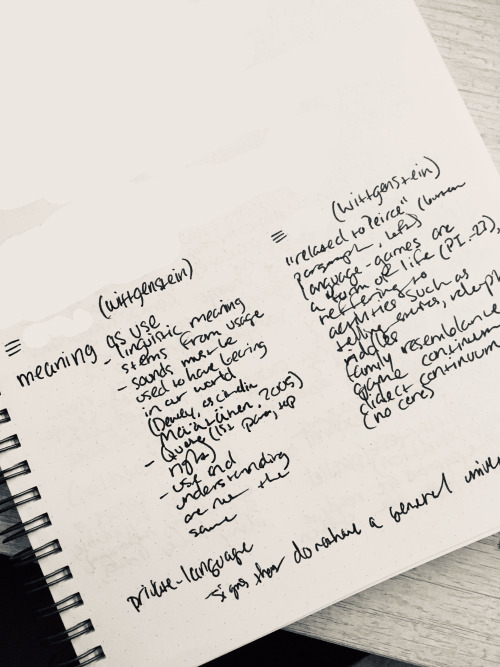 (wittgenstein)
meaning as use
- linguistic meaning
stems from usage
- sounds must be
used to have bearing
in our world
(Dewey, as cited in
Määttänen, 2005)
- (1st para, top
right)
- use and
understanding
are the
same
private-language
signs that do not have a general
(wittgenstein)
"related to Peirce" (bottom
paragraph, left)
language-games are
a form of life (PI. 23),
reffering to
activities such as
telling
riddles
family resemblance
game continuum
dialect continuum
(no core)